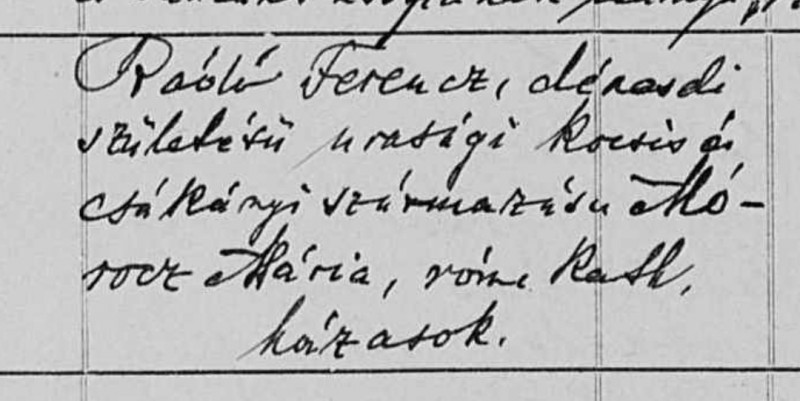 Radó Ferencz, dénesdi
születésü urasági kocsis és
csákányi származásu Mó-
rocz Mária, róm. kath.
házasok.